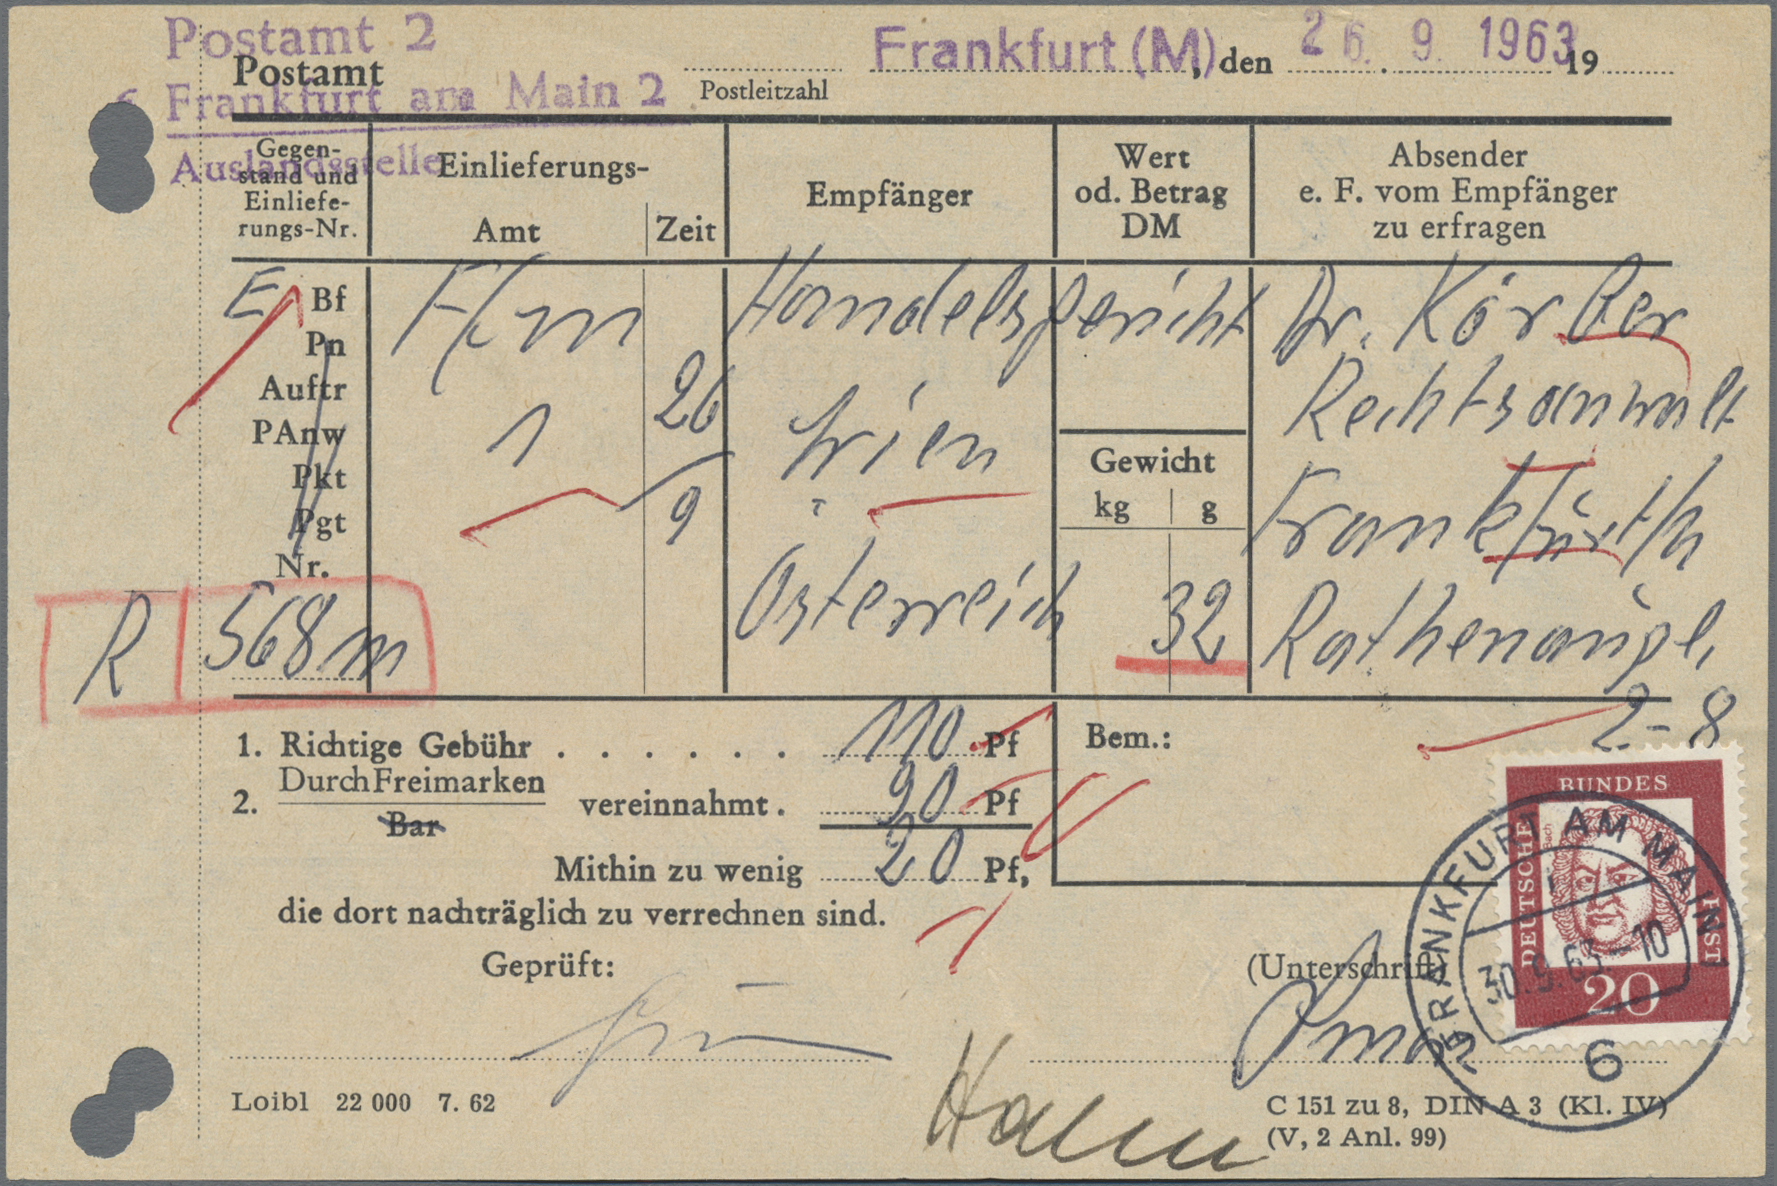 Postamt 2
6 Frankfurt am Main 2
Auslandsstelle
Postamt
Postleitzahl
Frankfurt (M), den 26. 9. 1963 19
Gegen-
stand und
Einliefe-
rungs-Nr.
Einlieferungs-
Amt
Zeit
Empfänger
Wert
od. Betrag
DM
Absender
e. F. vom Empfänger
zu erfragen
E Bf
Pn
Auftr
PAnw
Pkt
Pgt
Nr.
R 568 m
Ffm
1
26
9
Handelsgericht
Wien
Österreich
Gewicht
kg g
32
Dr. Körber
Rechtsanwalt
Frankfurt/M
Rathenaupl.
2-8
1. Richtige Gebühr . . . . . . 110 Pf
2. Durch Freimarken
Bar
vereinnahmt . 90 Pf
Mithin zu wenig 20 Pf,
die dort nachträglich zu verrechnen sind.
Bem.:
Geprüft:
(Unterschrift)
Loibl 22 000 7. 62
C 151 zu 8, DIN A 3 (Kl. IV)
(V, 2 Anl. 99)
BUNDES
DEUTSCHE
POST
Bach
20
FRANKFURT AM MAIN 1
30.9.63-10
6